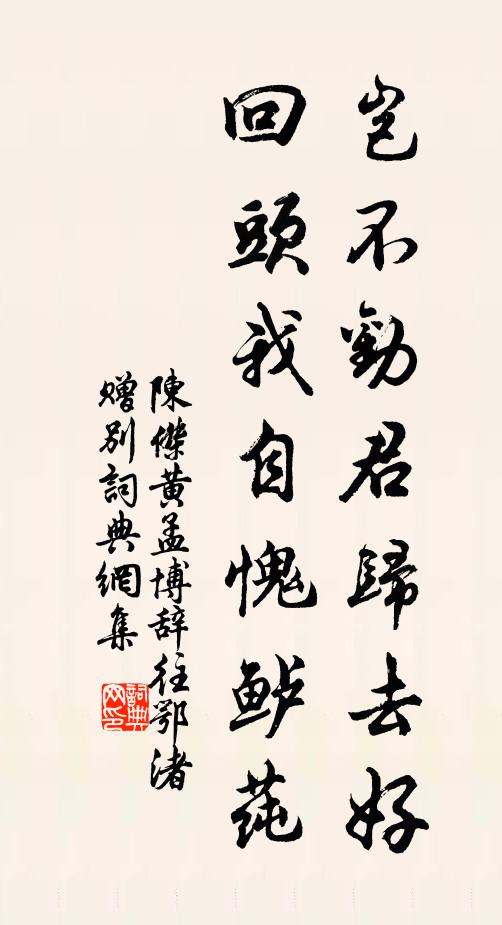 豈不勸君歸去好
回頭我自愧鲈莼
陳傑黄孟博辭往鄂渚
贈別詞典網集
詞典
网印